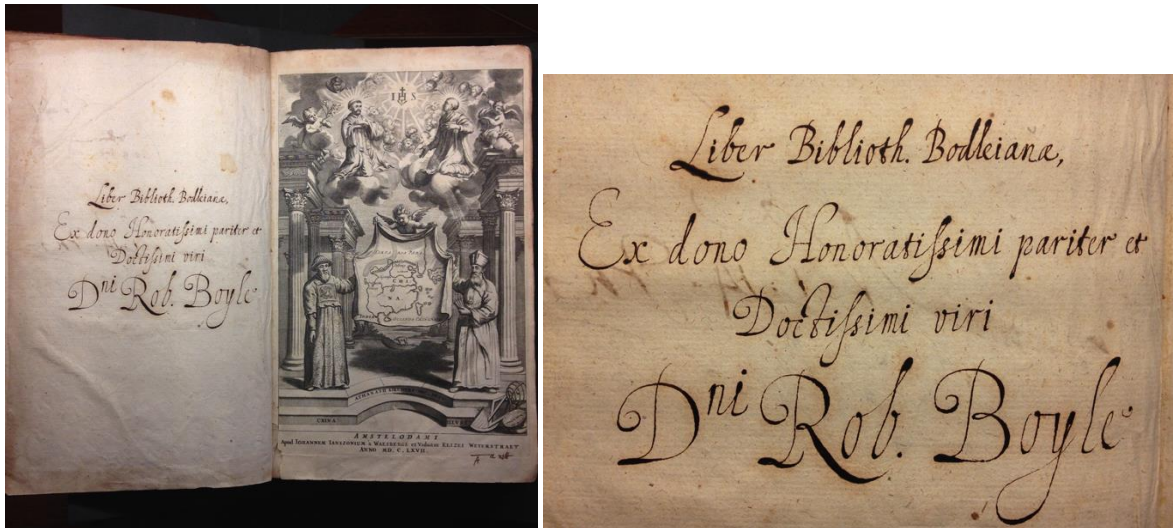 Liber Biblioth. Bodleianæ,
Ex dono Honoratissimi pariter et
Doctissimi viri
Dni Rob. Boyle
IHS
CHI
NA.
ATHANASII
CHINA
AMSTELODAMI
Apud IOANNEM IANSSONIUM à WAESBERGE et Viduam ELIZEI WEYERSTRAET
ANNO MD. C. LXVII.
Liber Biblioth. Bodleianæ,
Ex dono Honoratissimi pariter et
Doctissimi viri
Dni Rob. Boyle